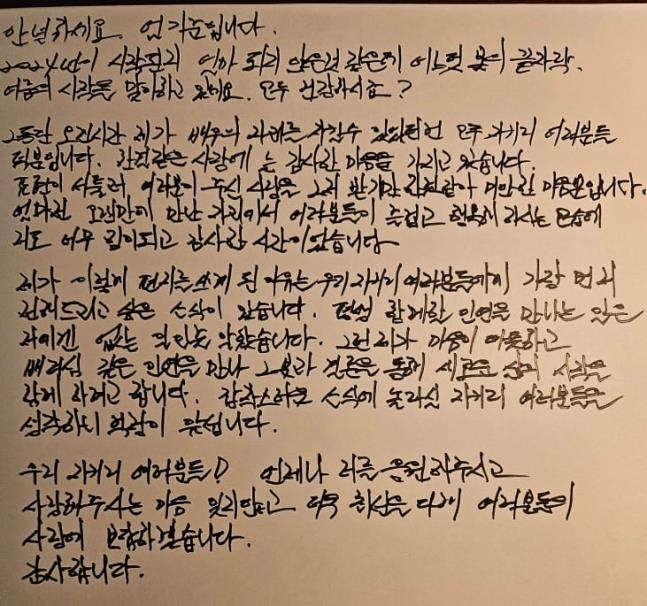 안녕하세요. 엄기준입니다.
2024년이 시작된지 얼마 되지 않은것 같은데 어느덧 봄의 끝자락.
여름의 시작을 맞이하고 있네요. 모두 건강하시죠?
그동안 오랜시간 제가 배우의 자리를 지킬수 있었던건 모두 자기리 여러분들
덕분입니다. 한결같은 사랑에 늘 감사한 마음을 가지고 있습니다.
표현이 서툴러, 여러분이 주신 사랑을 그저 받기만 한것같아 미안한 마음뿐입니다.
얼마전 오랜만에 만난 자리에서 여러분들이 즐겁고 행복해 하시는 모습에
저도 너무 힘이되고 감사한 시간이었습니다.
제가 이렇게 편지를 쓰게 된 이유는 우리 자기리 여러분들에게 가장 먼저
전해드리고 싶은 소식이 있습니다. 평생 함께할 인연을 만나는 일은
저에겐 없는 일인줄 알았습니다. 그런 제가 마음이 따뜻하고
배려심 깊은 인연을 만나 그분과 결혼을 통해 새로운 삶의 시작을
함께 하려고 합니다. 갑작스러운 소식에 놀라실 자기리 여러분들을
생각하니 걱정이 앞섭니다.
우리 자기리 여러분들! 언제나 저를 응원해주시고
사랑해주시는 마음 잊지않고 더욱 최선을 다해 여러분들의
사랑에 보답하겠습니다.
감사합니다.